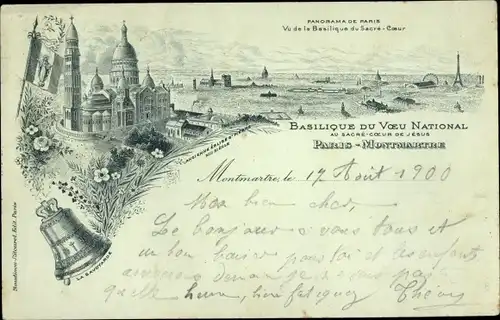 PANORAMA DE PARIS
Vu de la Basilique du Sacré-Cœur
BASILIQUE DU VŒU NATIONAL
AU SACRÉ-CŒUR DE JÉSUS
PARIS-MONTMARTRE
LA SAVOYARDE
Montmartre, le 17 Août 1900
Mon bien cher,
Le bonjour a vous tous et
un bon baiser pour toi et les enfants
nous pas
quelle heure, bien fatiguez